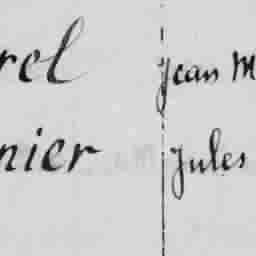 rel Jean M
nier Jules